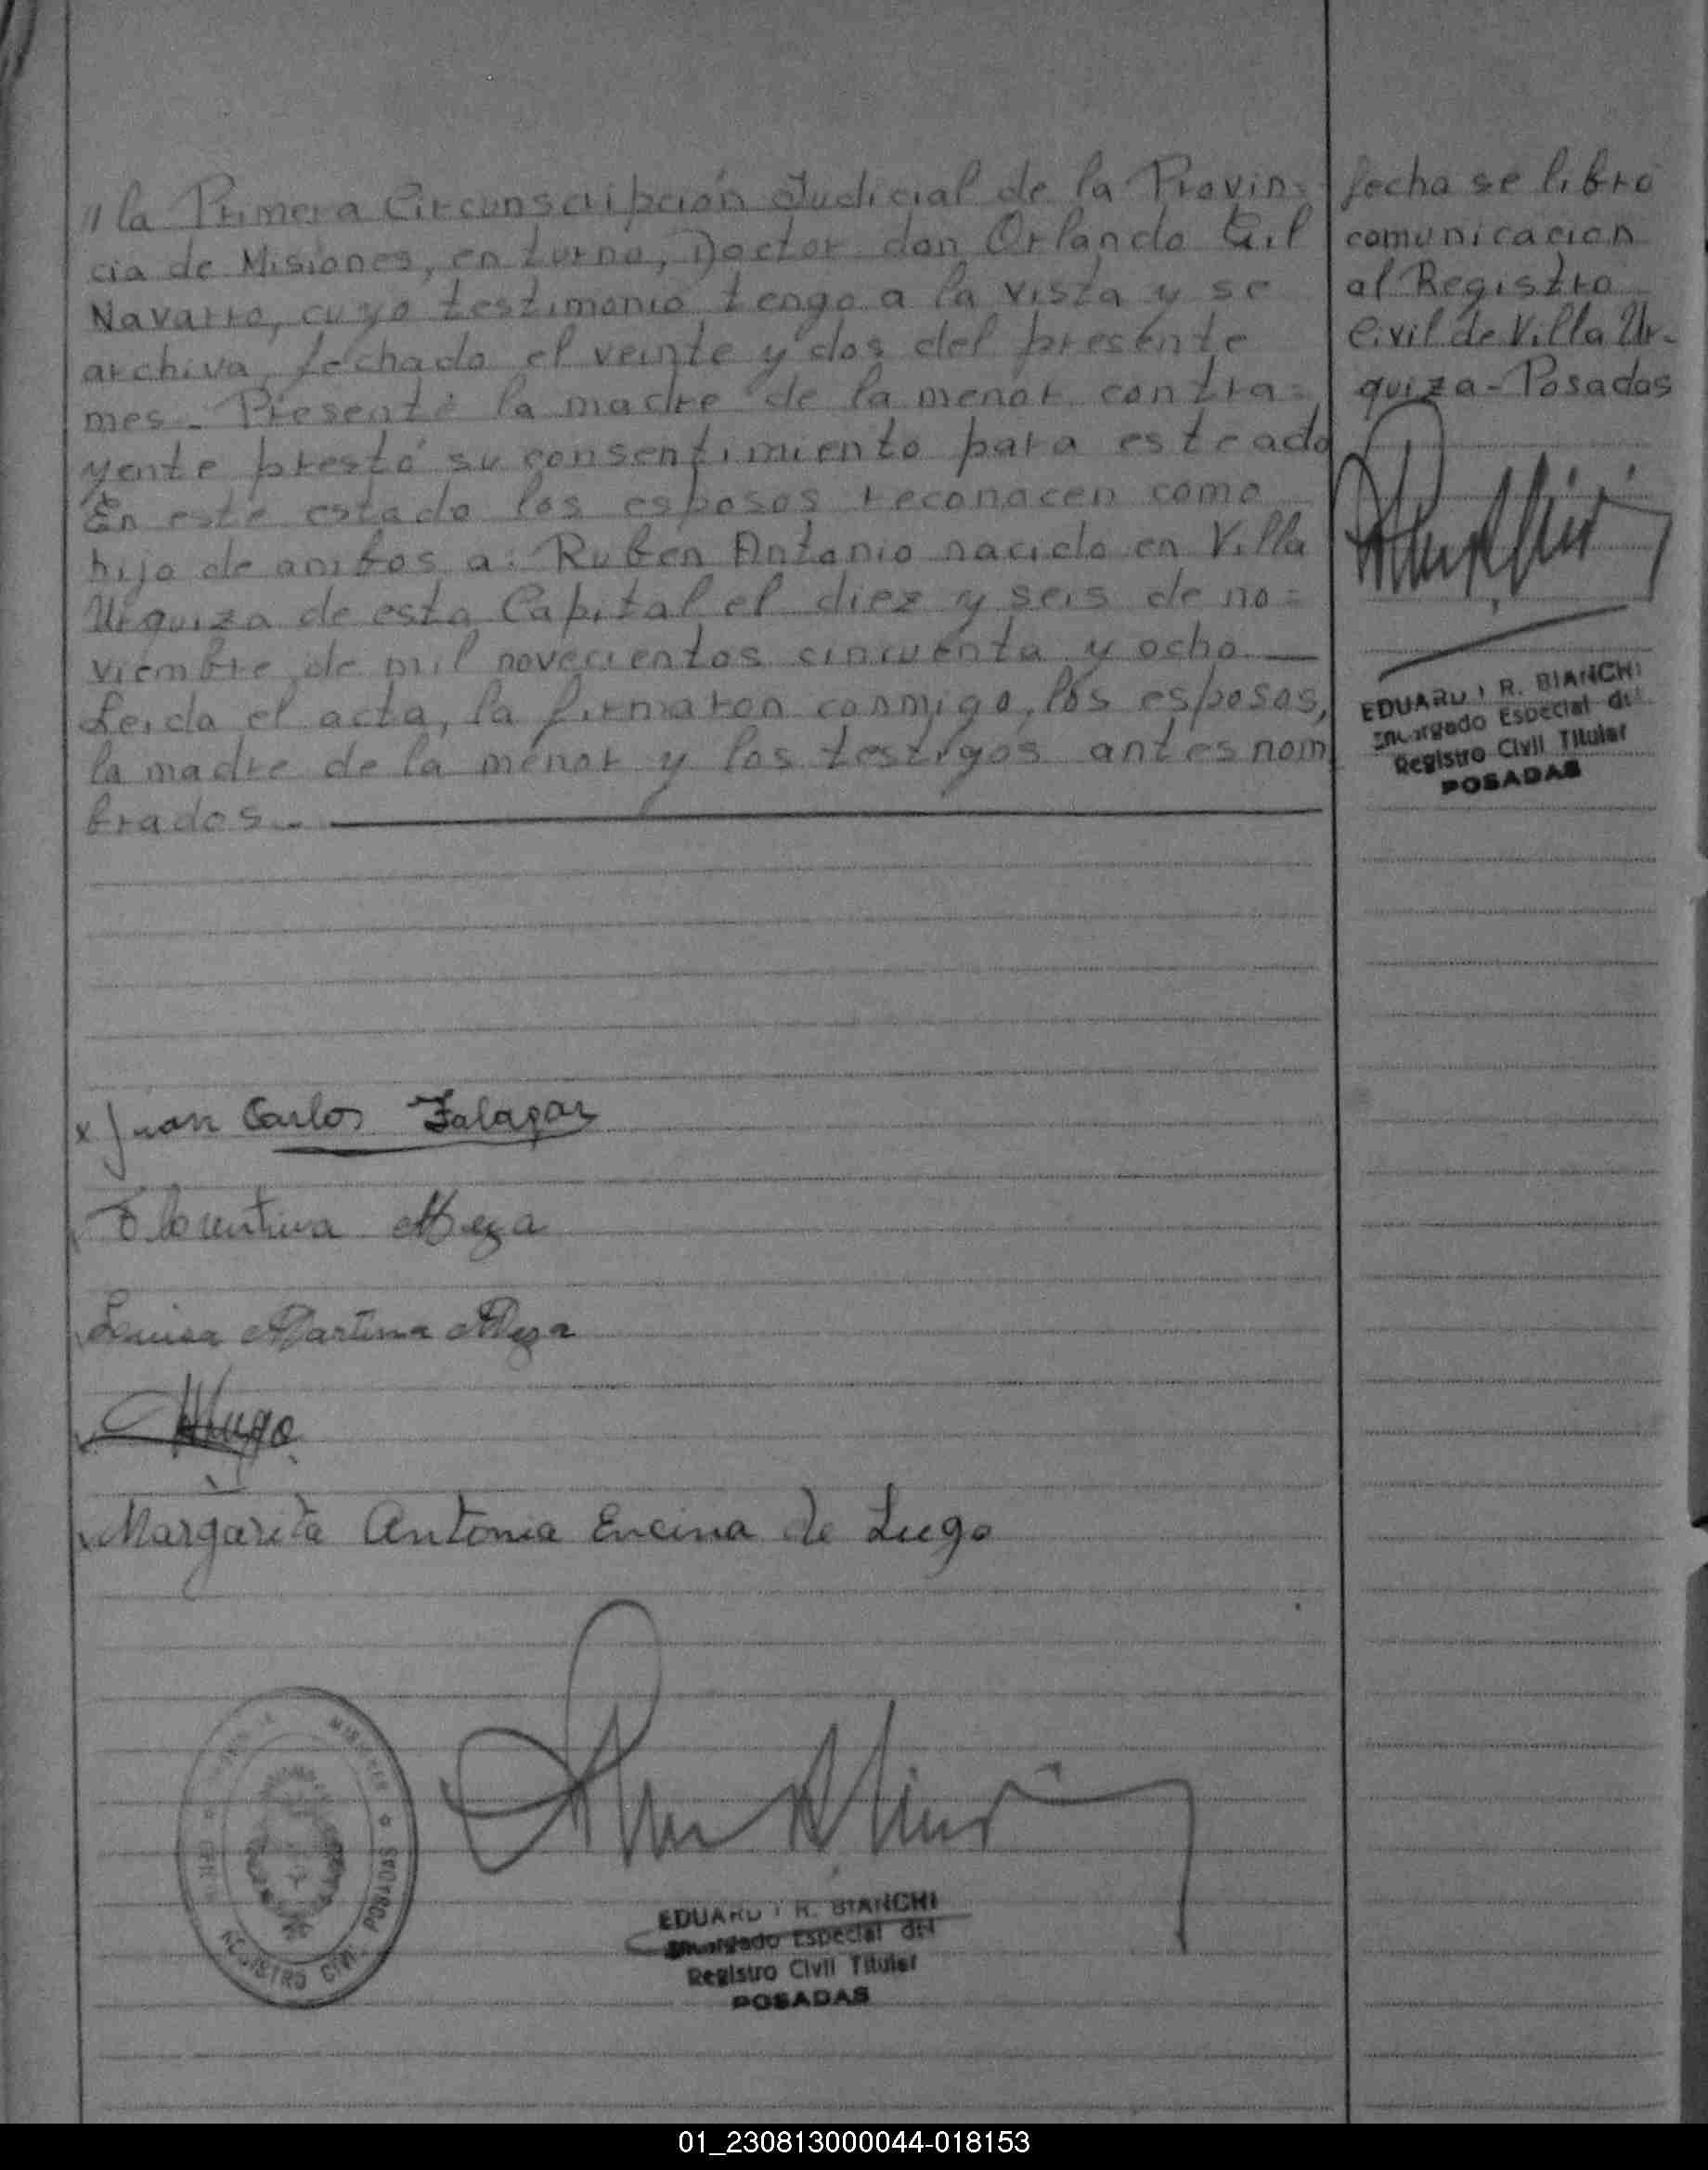 "la Primera Circunscripción Judicial de la Provin=
cia de Misiones, en turno, Doctor don Orlando Gil
Navarro, cuyo testimonio tengo a la vista y se
archiva, fechado el veinte y dos del presente
mes_ Presente la madre de la menor contra=
yente prestó su consentimiento para este acto
En este estado los esposos reconocen como
hijo de ambos a: Rubén Antonio nacido en Villa
Urquiza de esta Capital el diez y seis de no=
viembre de mil novecientos cincuenta y ocho
Leida el acta, la firmaron conmigo, los esposos,
la madre de la menor y los testigos antes nom
brados.-
fecha se libró
comunicación
al Registro
Civil de Villa Ur-
quiza-Posadas
EDUARDO R. BIANCHI
Encargado Especial del
Registro Civil Titular
POSADAS
x Juan Carlos Zalazar
Florentina Meza
Luisa Martina Meza
Lugo
Margarita Antonia Encina de Lugo
MISIONES * POSADAS
REGISTRO CIVIL
EDUARDO R. BIANCHI
Encargado Especial del
Registro Civil Titular
POSADAS
01_230813000044-018153